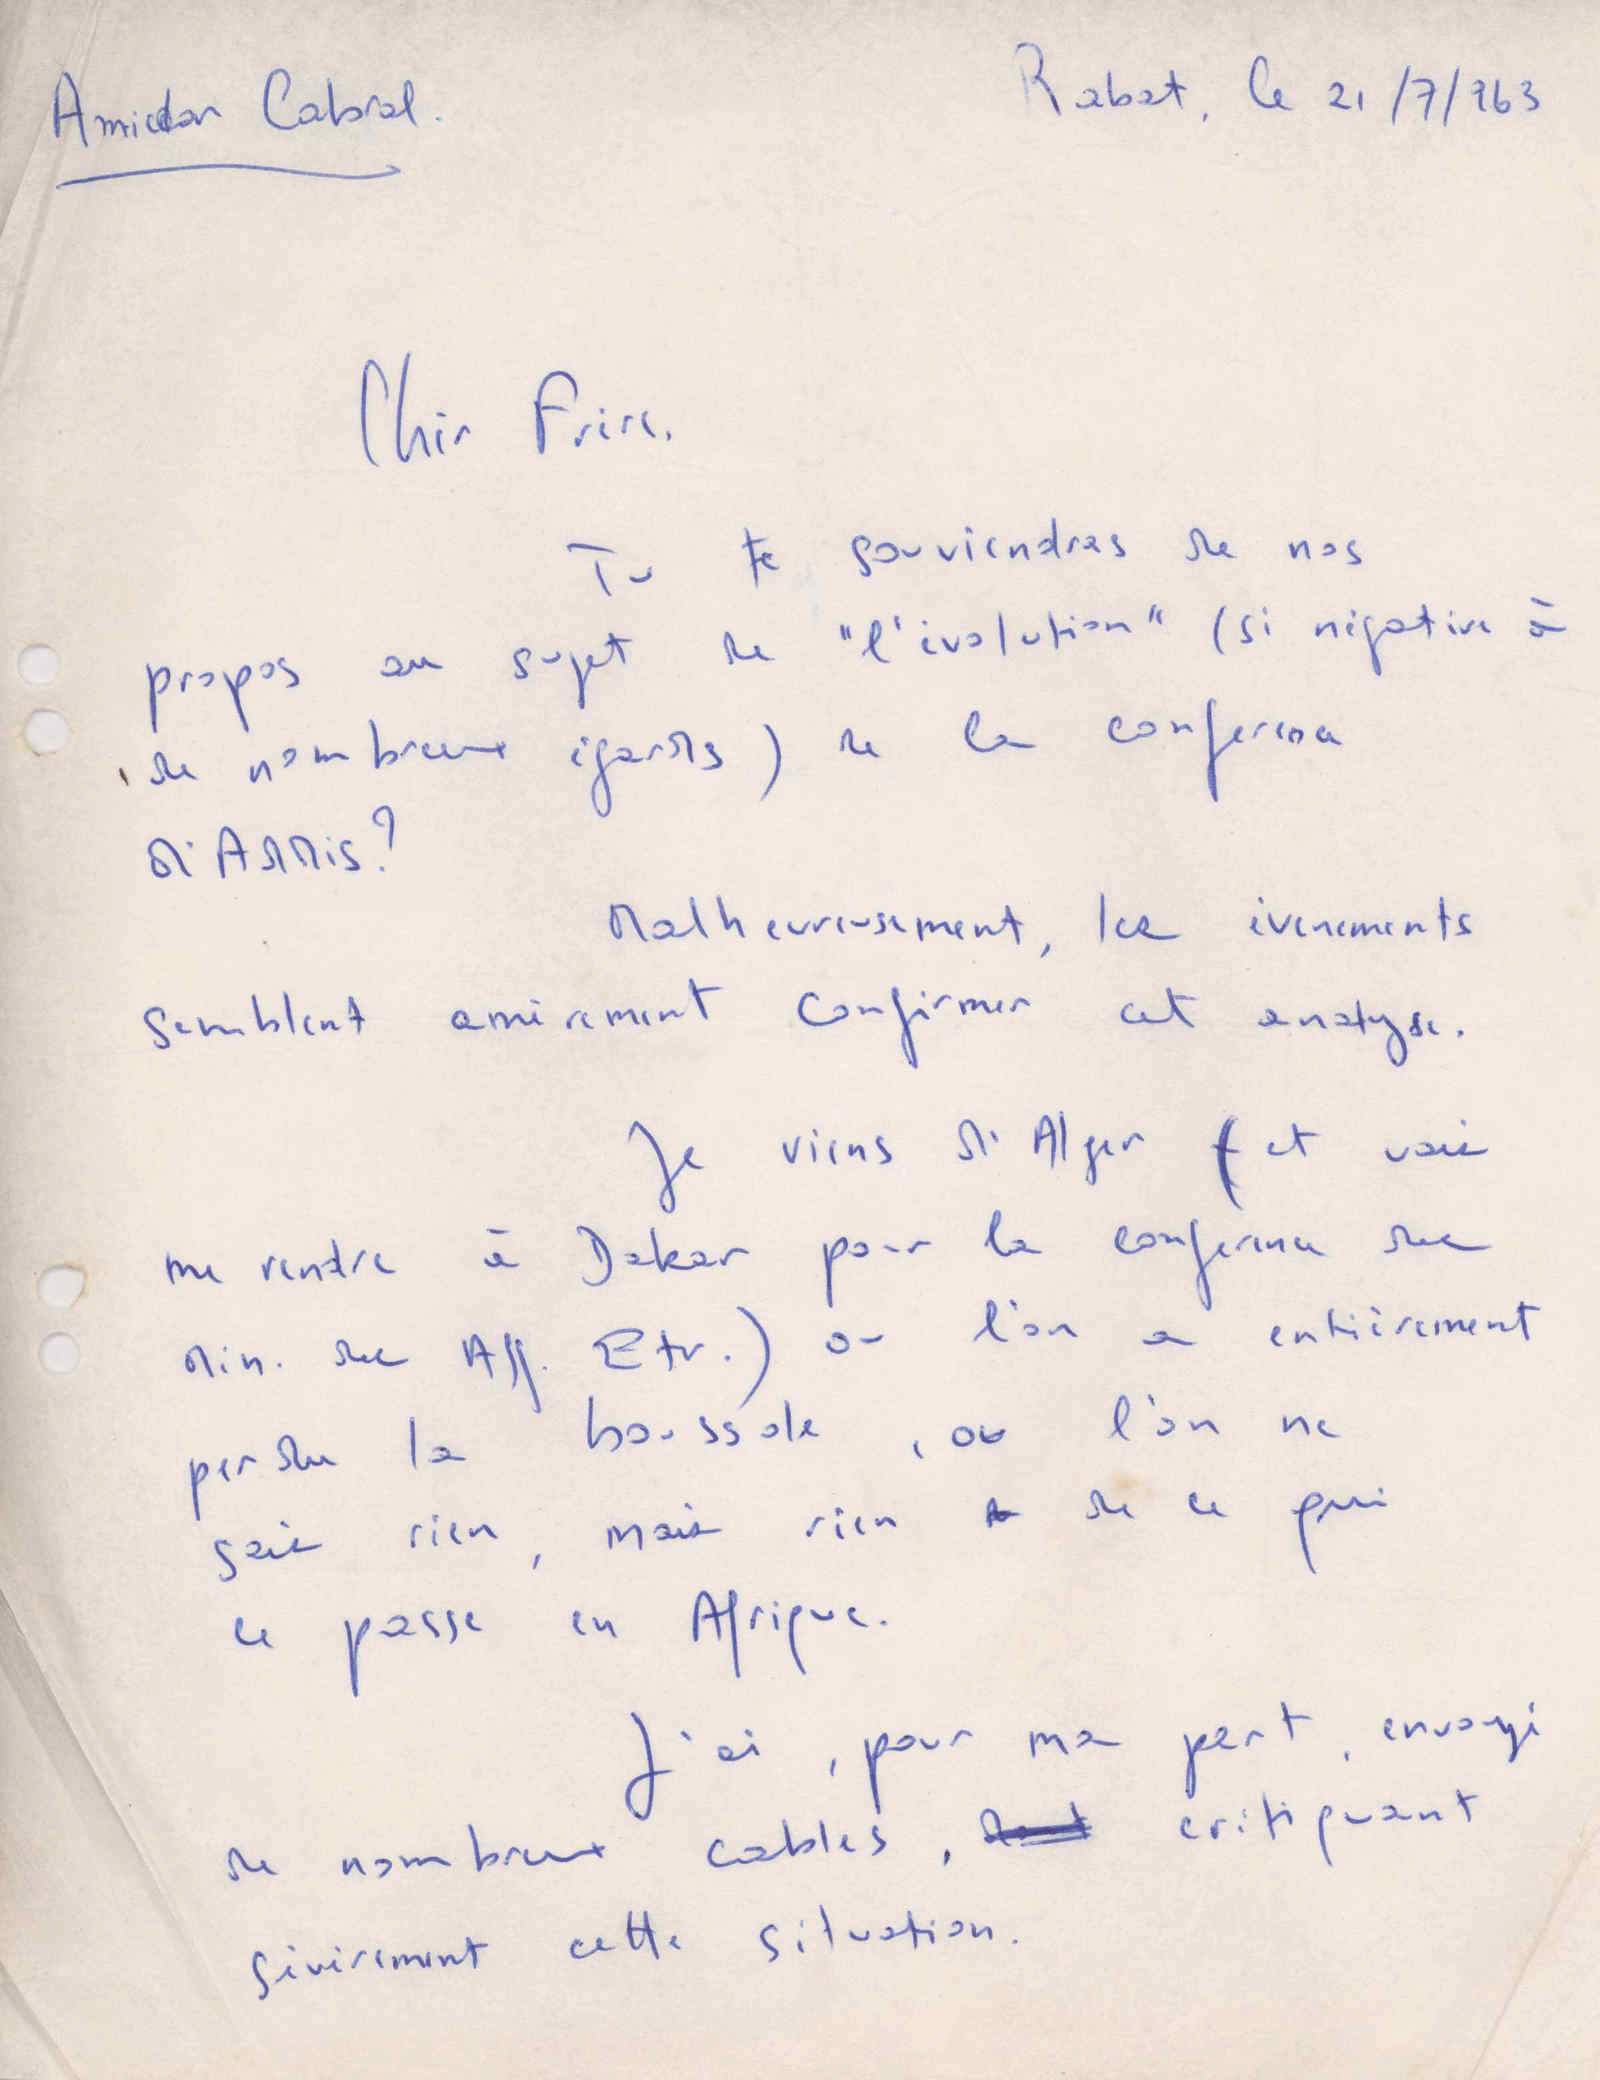 Amilcar Cabral.
Rabat, le 21/7/963
Chèr Frère.
Tu te souviendras de nos
propos au sujet de "l'évolution" (si négative à
de nombreux égards) de la conference
d'Addis?
Malheureusement, les évenements
semblent amèrement confirmer cet analyse.
Je viens d'Alger (et vais
me rendre à Dakar pour la conference des
Min. des Aff. Etr.) ou l'on a entièrement
perdu la boussole, ou l'on ne
sais rien, mais rien de ce qui
ce passe en Afrique.
J'ai, pour ma part, envoyé
de nombreux cables, critiquant
sévèrement cette situation.